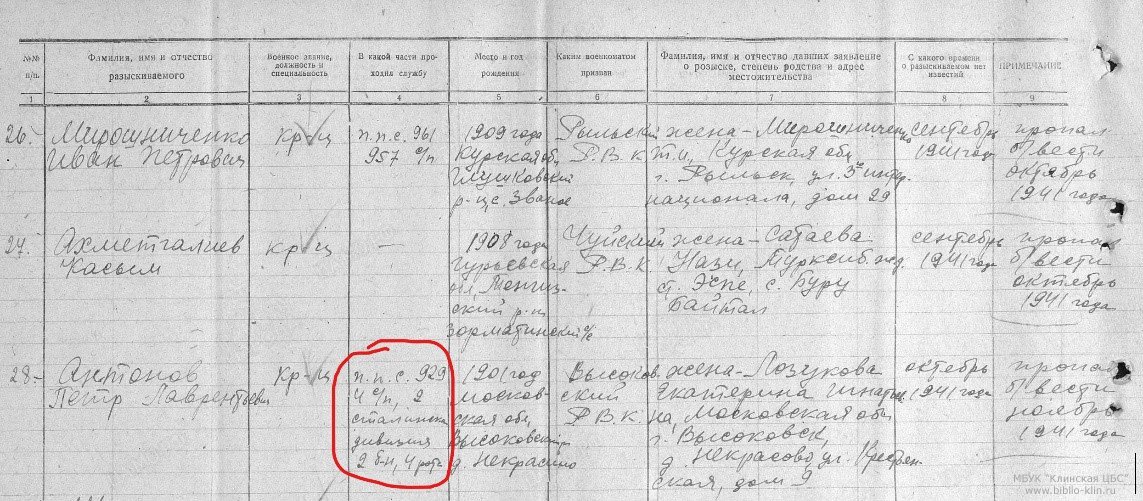 №№ п/п.
Фамилия, имя и отчество разыскиваемого
Военное звание, должность и специальность
В какой части проходил службу
Место и год рождения
Каким военкоматом призван
Фамилия, имя и отчество давших заявление о розыске, степень родства и адрес местожительства
С какого времени о разыскиваемом нет известий
ПРИМЕЧАНИЕ
1 2 3 4 5 6 7 8 9
26.
Мирошниченко
Иван Петрович
кр-ц
п.п.с. 961
957 с/п
1909 года
Курская обл,
Глушковский
р-н, с. Званое
Рыльский
Р.В.К.
жена - Мирошниченко
Курская обл
г. Рыльск, ул. 3й интер
национала, дом 29
сентябрь
1941 года
пропал
б/вести
октябрь
1941 года
27.
Ахметгалиев
Касым
кр-ц
—
1908 года
Гурьевская
ский р-н
Чуйский
Р.В.К.
жена - Сатаева
Нази, Турксиб ж.д.
ст. Эспе, с. Буру
Байтал
сентябрь
1941 года
пропал
б/вести
октябрь
1941 года
28-
Антонов
Петр Лаврентьевич
кр-ц
п.п.с. 929
4 с/п, 2
сталинск
дивизия
2 б-н, 4 рота
1901 год
Москов-
ская обл,
Высоковский
д. Некрасино
Высоков
ский
Р.В.К.
жена - Лозукова
Екатерина Игнатьев
на, Московская обл,
г. Высоковск,
д. Некрасово, ул. Крестьян
ская, дом 9
октябрь
1941 года
пропал
б/вести
ноябрь
1941 года
МБУК "Клинская ЦБС"
www.biblio-klin.ru